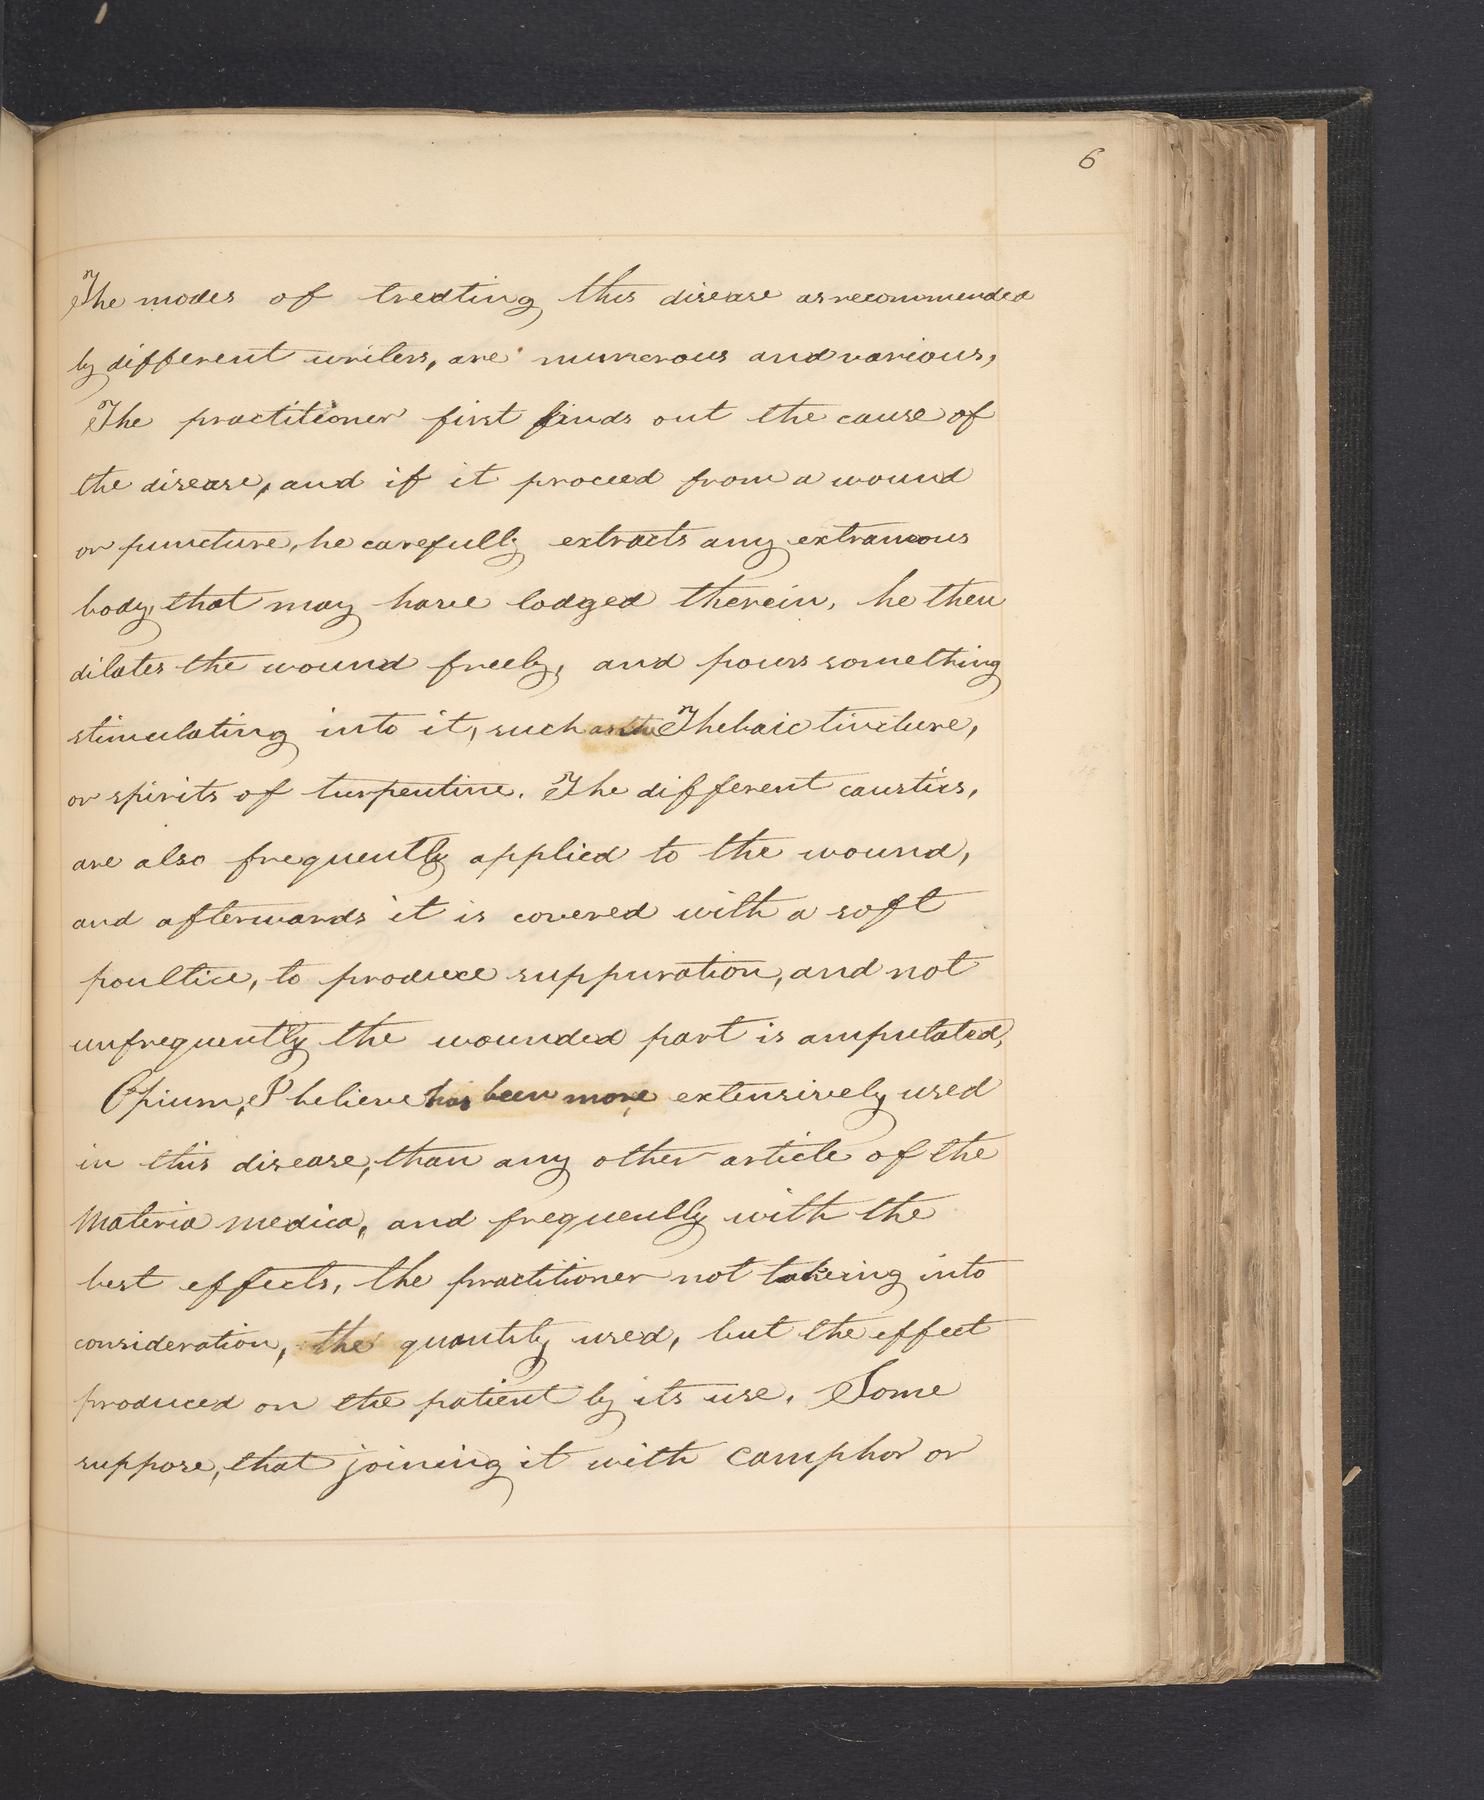 6
The modes of treating this disease as recommended
by different writers, are numerous and various,
The practitioner first finds out the cause of
the disease, and if it proceed from a wound
or puncture, he carefully extracts any extraneous
body, that may have lodged therein, he then
dilates the wound freely, and pours something
stimulating into it, such as the Thebaic tincture,
or spirits of turpentine. The different caustics,
are also frequently applied to the wound,
and afterwards it is covered with a soft
poultice, to produce suppuration, and not
unfrequently the wounded part is amputated,
Opium, I believe has been more extensively used
in this disease, than any other article of the
Materia medica, and frequently with the
best effects, the practitioner not takeing into
consideration, the quantity used, but the effect
produced on the patient by its use. Some
suppose, that joining it with Camphor or